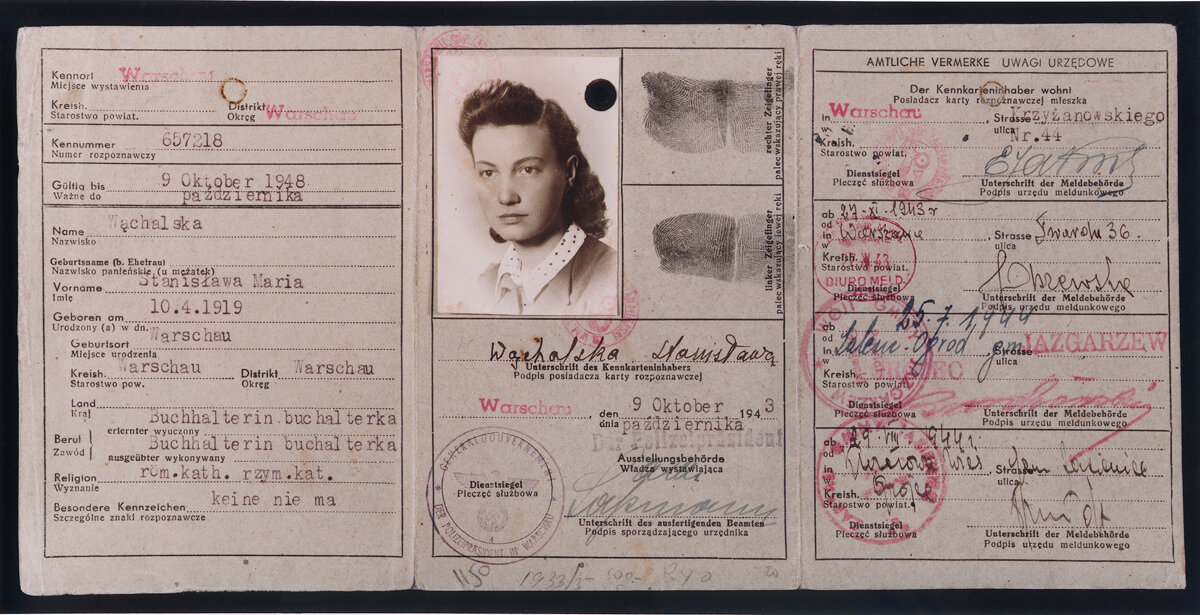 Kennort Warschau
Miejsce wystawienia
Kreish. Distrikt Warschau
Starostwo powiat. Okręg
Kennummer 657218
Numer rozpoznawczy
Gültig bis 9 Oktober 1948
Ważne do października
Wąchalska
Name
Nazwisko
Geburtsname (b. Ehefrau)
Nazwisko panieńskie (u mężatek)
Vorname Stanisława Maria
Imię
10.4.1919
Geboren am
Urodzony (a) w dn.
Warschau
Geburtsort
Miejsce urodzenia
Kreish. Warschau Distrikt Warschau
Starostwo pow. Okręg
Land
Kraj
Buchhalterin buchalterka
Beruf erlernter wyuczony
Zawód Buchhalterin buchalterka
ausgeübter wykonywany
Religion röm.kath. rzym.kat.
Wyznanie
keine nie ma
Besondere Kennzeichen
Szczególne znaki rozpoznawcze
rechter Zeigefinger
palec wskazujący prawej ręki
linker Zeigefinger
palec wskazujący lewej ręki
Wąchalska Stanisława
Unterschrift des Kennkarteninhabers
Podpis posiadacza karty rozpoznawczej
Warschau, den 9 Oktober 1943
dnia października
Der Polizeipräsident
Ausstellungsbehörde
Władza wystawiająca
GENERALGOUVERNEMENT
DER POLIZEIPRÄSIDENT IN WARSCHAU
Dienstsiegel
Pieczęć służbowa
Unterschrift des ausfertigenden Beamten
Podpis sporządzającego urzędnika
1150
AMTLICHE VERMERKE UWAGI URZĘDOWE
Der Kennkarteninhaber wohnt
Posiadacz karty rozpoznawczej mieszka
in Warschau, Strasse Krzyżanowskiego
w ulica Nr.44
Kreish.
Starostwo powiat.
Dienstsiegel Unterschrift der Meldebehörde
Pieczęć służbowa Podpis urzędu meldunkowego
ab 27-XI-1943 r
od
in Warszawa, Strasse Twarda 36.
w ulica
Kreish.
Starostwo powiat.
BIURO MELD.
Dienstsiegel Unterschrift der Meldebehörde
Pieczęć służbowa Podpis urzędu meldunkowego
ab 25.7.1944
od
in gm JAZGARZEW
w Strasse
ulica
Kreish.
Starostwo powiat.
Dienstsiegel Unterschrift der Meldebehörde
Pieczęć służbowa Podpis urzędu meldunkowego
ab 29-VIII-1944 r.
od
in Strasse
w ulica
Kreish.
Starostwo powiat.
Dienstsiegel Unterschrift der Meldebehörde
Pieczęć służbowa Podpis urzędu meldunkowego